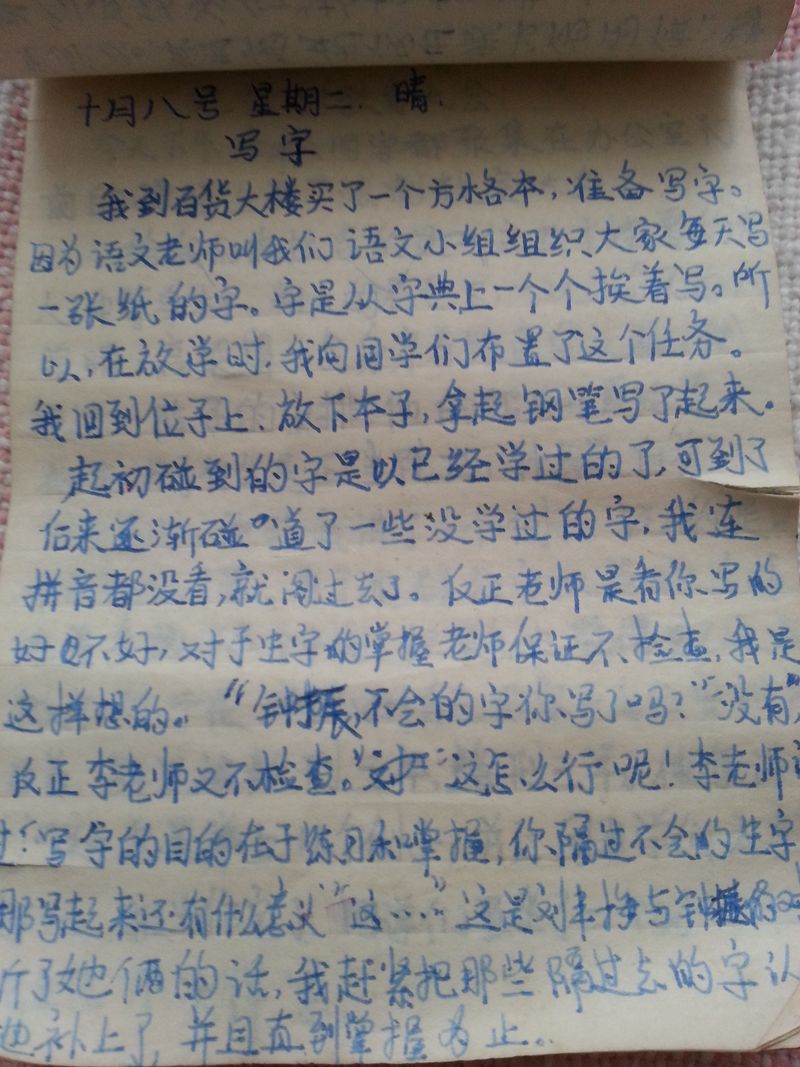 十月八号 星期二. 晴.
写字
我到百货大楼买了一个方格本，准备写字。
因为语文老师叫我们语文小组组织大家每天写
一张纸的字。字是从字典上一个个挨着写。所
以，在放学时，我向同学们布置了这个任务。
我回到位子上，放下本子，拿起钢笔写了起来。
起初碰到的字是以已经学过的了，可到了
后来逐渐碰道了一些没学过的字，我连
拼音都没看，就阁过去了。反正老师是看你写的
好也不好，对于生字的掌握老师保证不检查，我是
这样想的。“钟振，不会的字你写了吗？”“没有，
反正李老师又不检查。”“这怎么行呢！李老师
过：写字的目的在于练习和掌握，你隔过不会的生字
那写起来还有什么意义”“这……”这是刘丰挣与钟
听了她俩的话，我赶紧把那些隔过去的字认
地补上了，并且直到掌握为止。